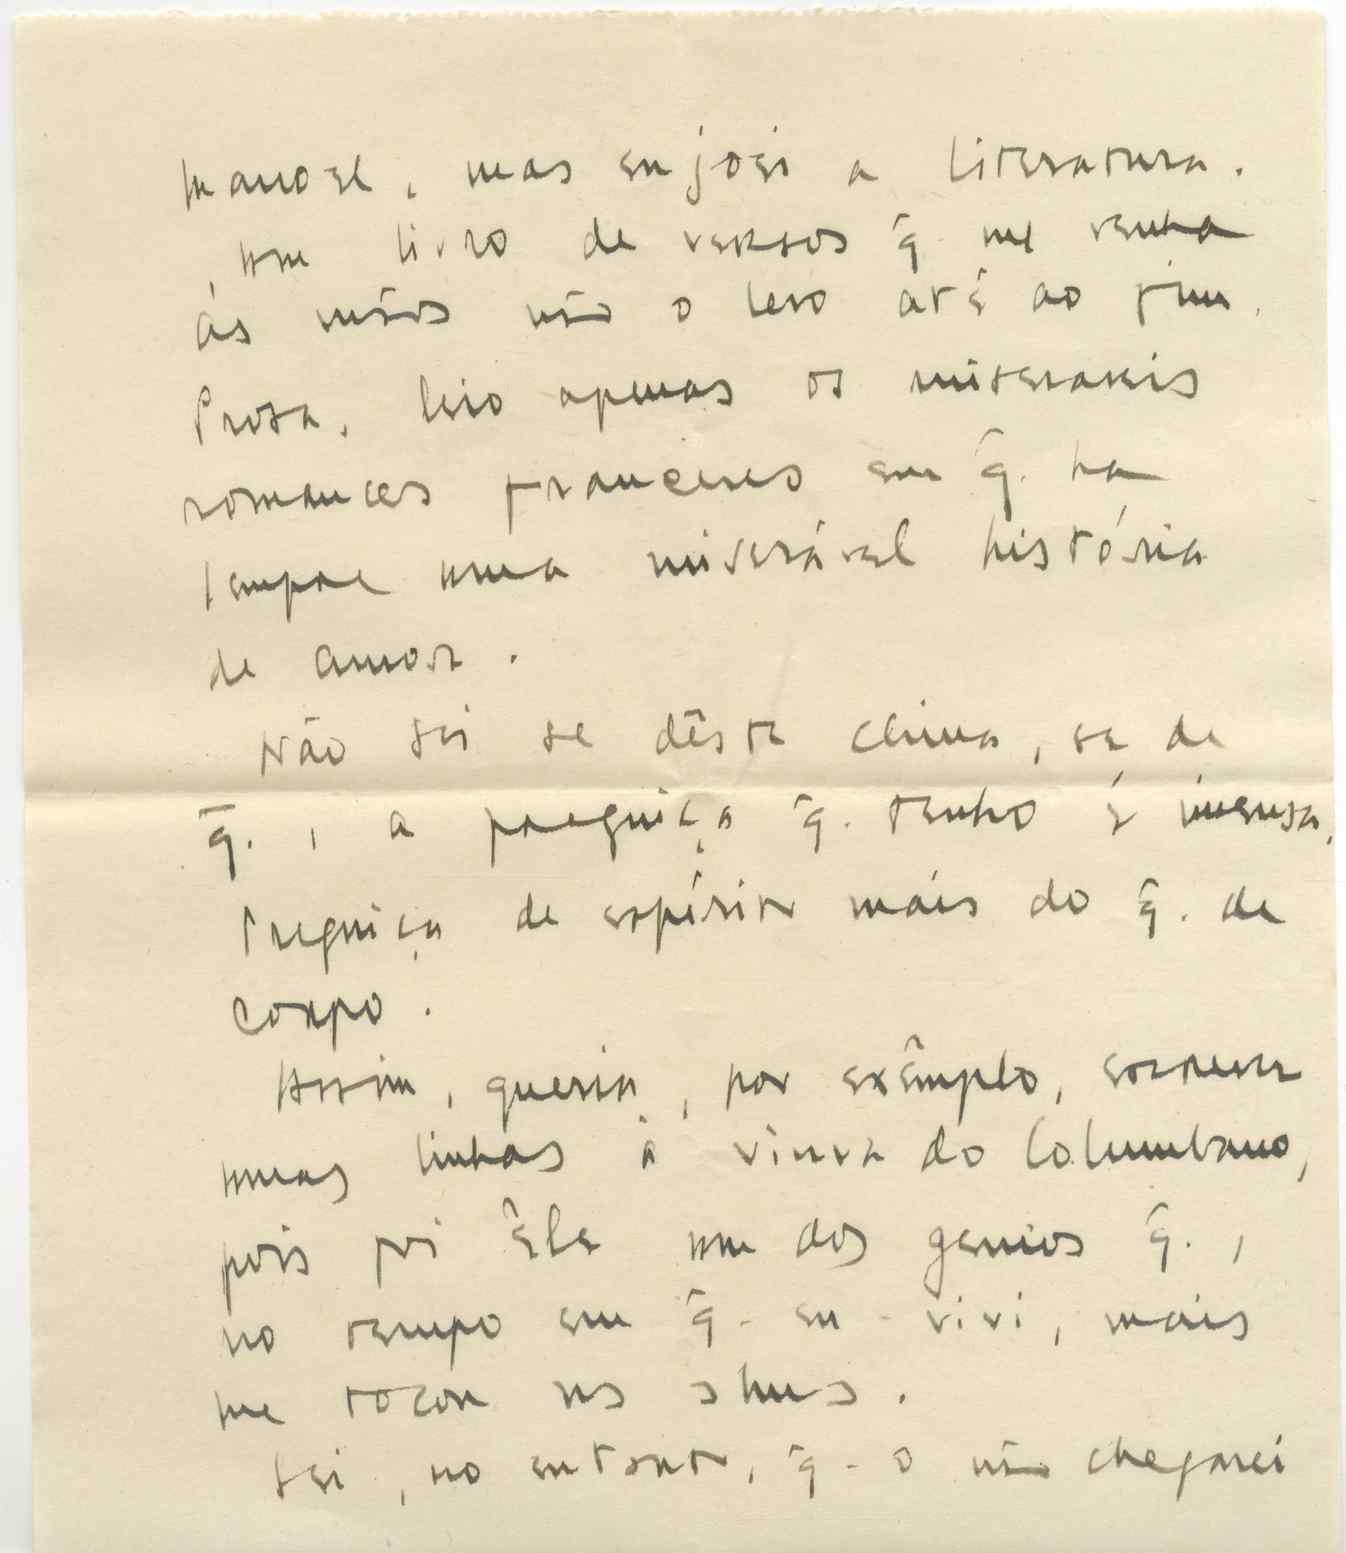 Manoel, mas enjoei a literatura.
um livro de versos q̃. me venha
ás mãos não o leio até ao fim.
Prosa, leio apenas os miseraveis
romances franceses em q̃. ha
sempre uma miserável história
de amor.
Não sei se dêste clima, se de
q̃., a preguiça q̃. tenho é imensa,
Preguiça de espírito máis do q̃. de
corpo.
Assim, queria, por exêmplo, escrever
umas linhas á viuva do Columbano,
pois foi êle um dos genios q̃.,
no tempo em q̃. eu vivi, máis
me tocou
Sei, no entanto, q̃. o não chegarei